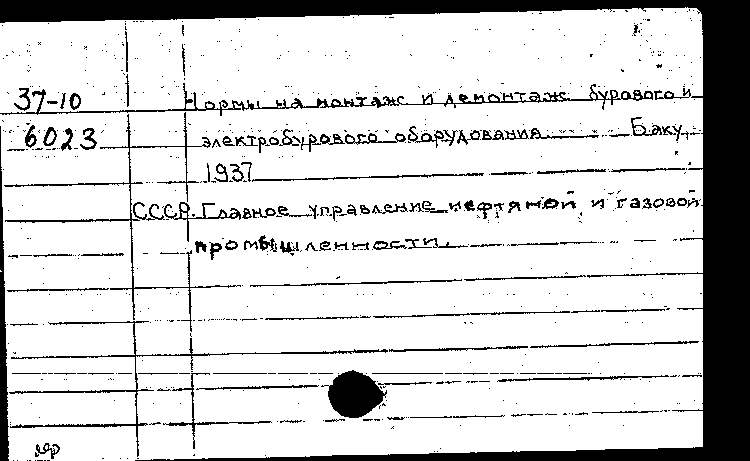 37-10 Нормы на монтаж и демонтаж бурового и
6023 электробурового оборудования Баку,
1937
СССР. Главное управление нефтяной и газовой
промышленности.